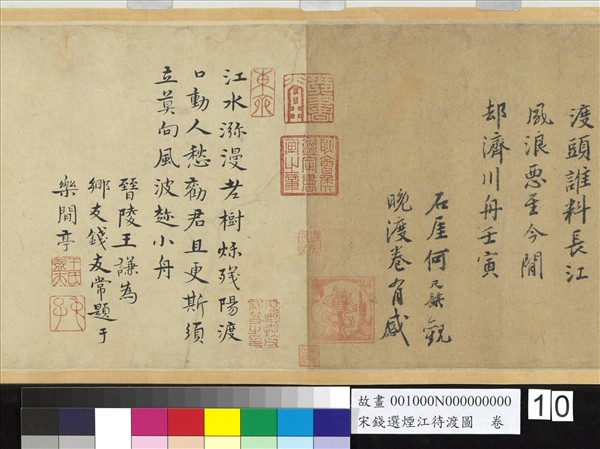 渡頭誰料長江
風浪惡至今閒
却濟川舟壬寅
石崖何
觀
晚渡卷有感
江水瀰漫老樹
殘陽渡
口動人愁勸君且更斯須
立莫向風波趂小舟
晉陵王謙為
鄉友錢友常題于
樂閒亭
故畫 001000N000000000
宋錢選煙江待渡圖 卷
10